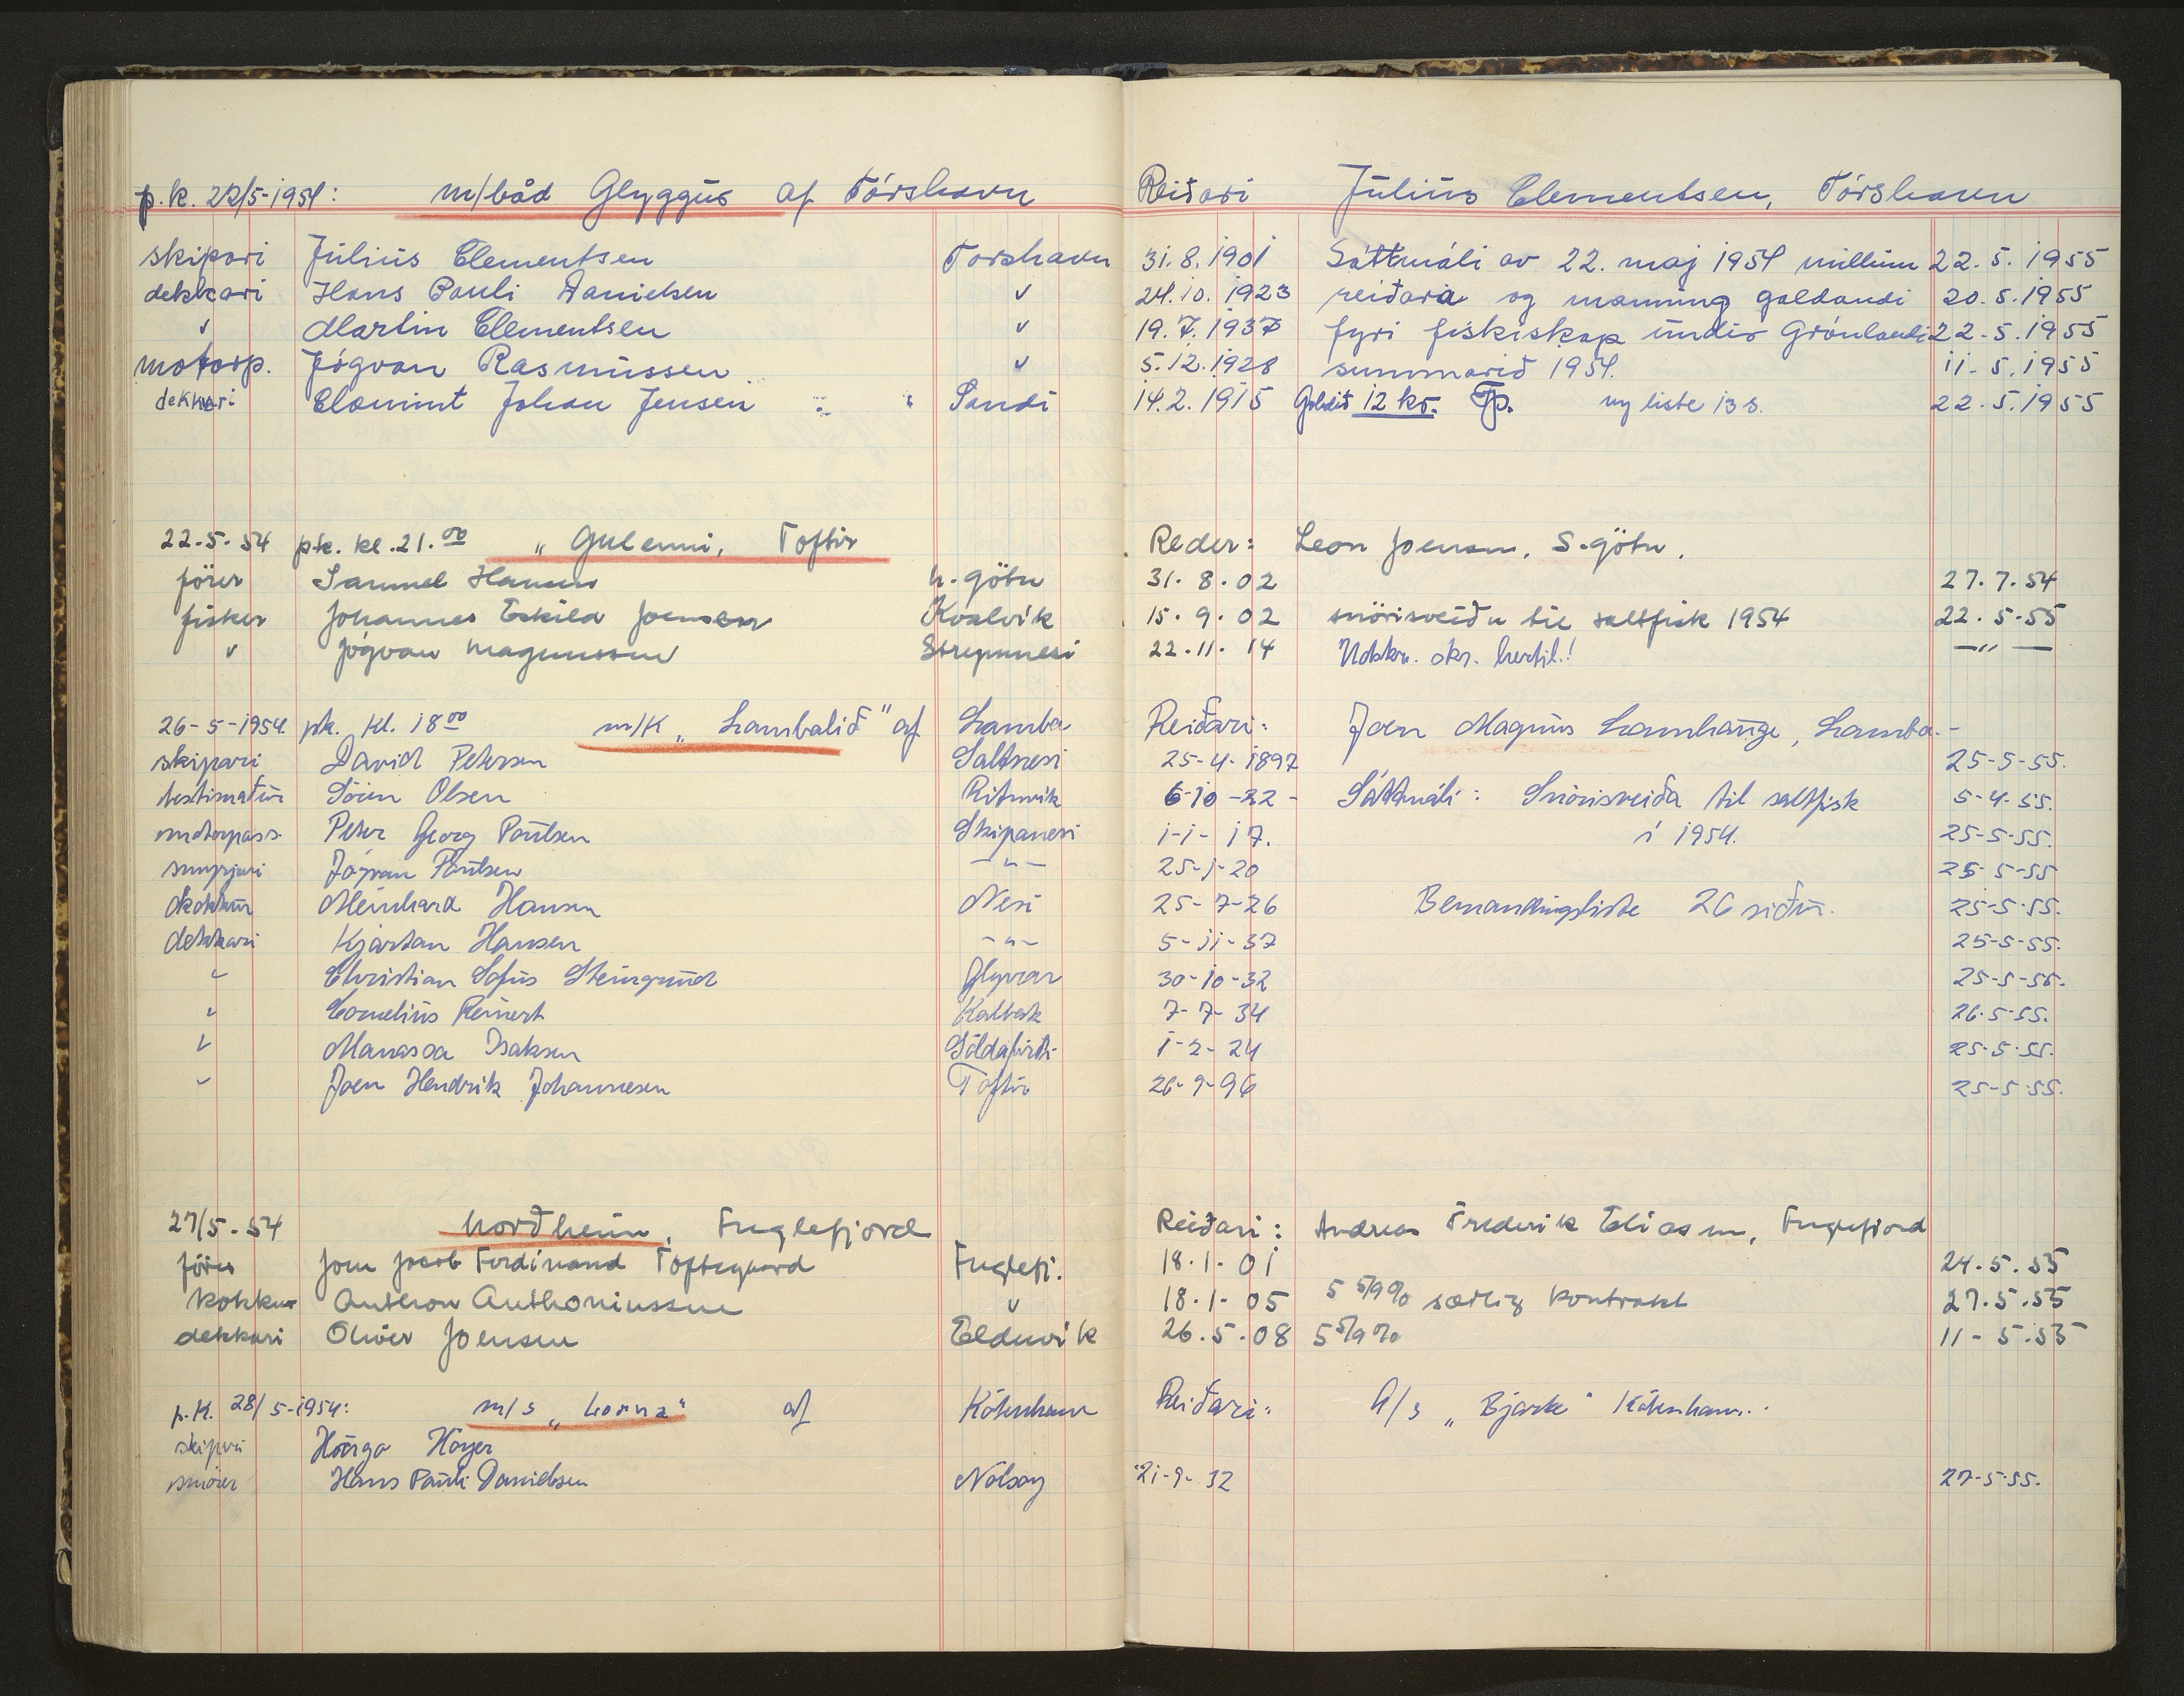 p.k. 22/5-1954: m/båd Glyggur af Tórshavn Reiðari Júliús Clementsen, Tórshavn
skipari Júliús Clementsen Torshavn 31.8.1901 Sáttmáli av 22. maj 1954 millum 22.5.1955
dekkari Hans Pauli Danielsen v 24.10.1923 reiðara og manning galdandi 20.5.1955
v Martin Clementsen v 19.7.1937 fyri fiskiskap undir Grónlandi 22.5.1955
motorp. Jógvan Rasmussen v 5.12.1928 summarið 1954. 11.5.1955
dekkari Clemint Johan Jensen Sandi 14.2.1915 Goldið 12 kr. ny liste 13 s. 22.5.1955
22-5-54 pk. kl. 21.00 " Gulenni, Toftir Reder: Leon Joensen, S.götu.
förer Samuel Hansen n. götu 31.8.02 27.7.54
fisker Johannes Eskild Joensen Kvalvik 15.9.02 snörisveidu til saltfisk 1954 22.5.55
v Jógvan Magnussen Streymnesi 22.11.14 Udskr. skr. hertil! —"—
26-5-1954. pk. kl. 18.00 m/k „Lambalið" af Lamba Reiðari: Joen Magnus Lamhauge, Lamba.-
skipari David Petersen Saltnesi 25-4-1897 25-5-55.
bestimaður Sören Olsen Rituvik 6-10-22- Sáttmáli: Snörisveiða til saltfisk 5-4-55.
motorpass. Peter Georg Poulsen Skipanesi 1-1-17. í 1954. 25-5-55.
smyrjari Jógvan Poulsen -"- 25-1-20 25-5-55
kokkur Meinhard Hansen Nesi 25-7-26 Bemandingsliste 26 siður. 25-5-55.
dekkari Kjartan Hansen -"- 5-11-37 25-5-55.
v Christian Sofus Steingrund Glyvrar 30-10-32 25-5-55.
v Cornelius Reinert Kaldbak 7-7-34 26-5-55.
v Manassa Isaksen Söldafirði 1-2-24 25-5-55.
v Joen Hendrik Johannesen Toftir 26-9-96 25-5-55.
27/5-54 Norðheim, Fuglefjord Reiðari: Andreas Frederik Eliasen, Fuglefjord
förer Joen Jacob Ferdinand Toftegaard Fuglefj. 18.1-01 24.5.55
kokkur Anthon Anthoniussen v 18.1-05 5 5/9% særlig kontrakt 27.5.55
dekkari Oliver Joensen Elduvik 26.5.08 5 5/9% 11-5.55
p.k. 28/5-1954: m/s „Lorna" af Köbenhavn Reiðari: A/s „Bjarke" Köbenhavn.
skipari Hörgo Höyer
smörer Hans Pauli Danielsen Nólsoy 21-9-32 27-5-55.